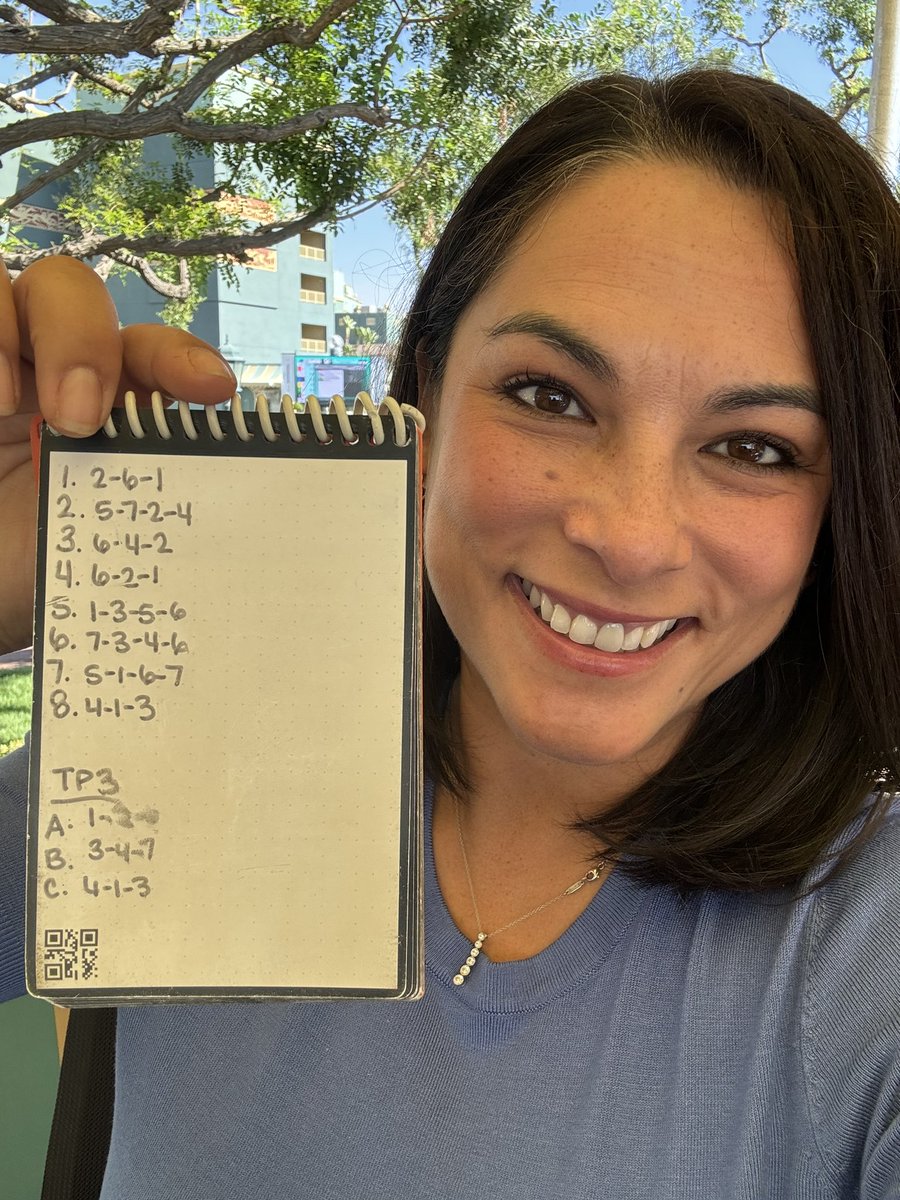 1. 2-6-1
2. 5-7-2-4
3. 6-4-2
4. 6-2-1
5. 1-3-5-6
6. 7-3-4-6
7. 5-1-6-7
8. 4-1-3
TP3
A. 1-
B. 3-4-7
C. 4-1-3